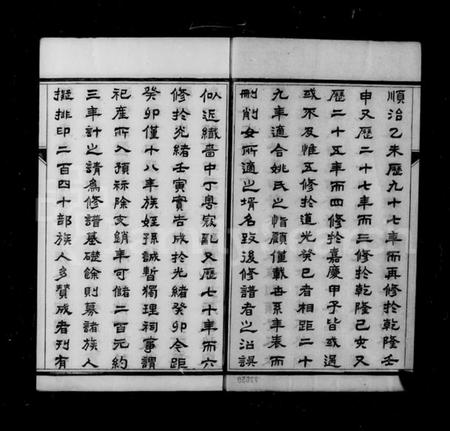 順治乙未歷九十七年而再修於乾隆壬
申又歷二十七年而三修於乾隆己亥又
歷二十五年而四修於嘉慶甲子皆或過
或不及惟五修於道光癸巳者相距二十
九年適合姚氏之指顧僅載世系年表而
刪削女所適之壻名致後修譜者之沿誤
似近纖嗇中丁粵寇亂又歷七十年而六
修於光緒壬寅實告成於光緒癸卯今距
癸卯僅十八年族姪孫誠暫獨理祠事謂
祀產所入預祘除支銷年可儲二百元約
三年計之請為修譜基礎餘則募諸族人
擬排印二百四十部族人多贊成者列有